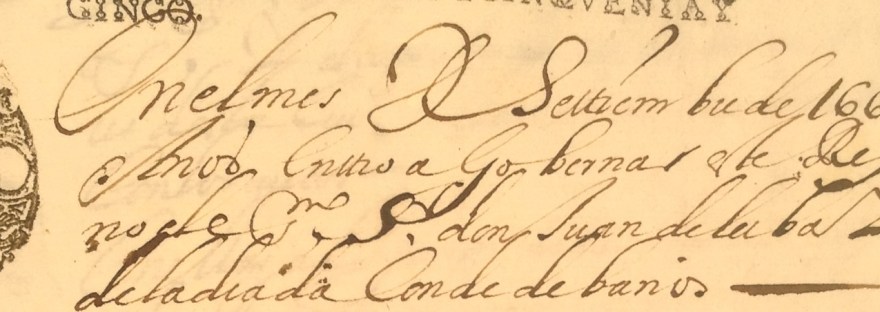 CINCO. CINQVENTAY
En el mes De Settiembre de 166
Años Entro a Gobernar este Rey
no el ex.mo S.r don Juan de leiba Z
de la diada Conde de baños